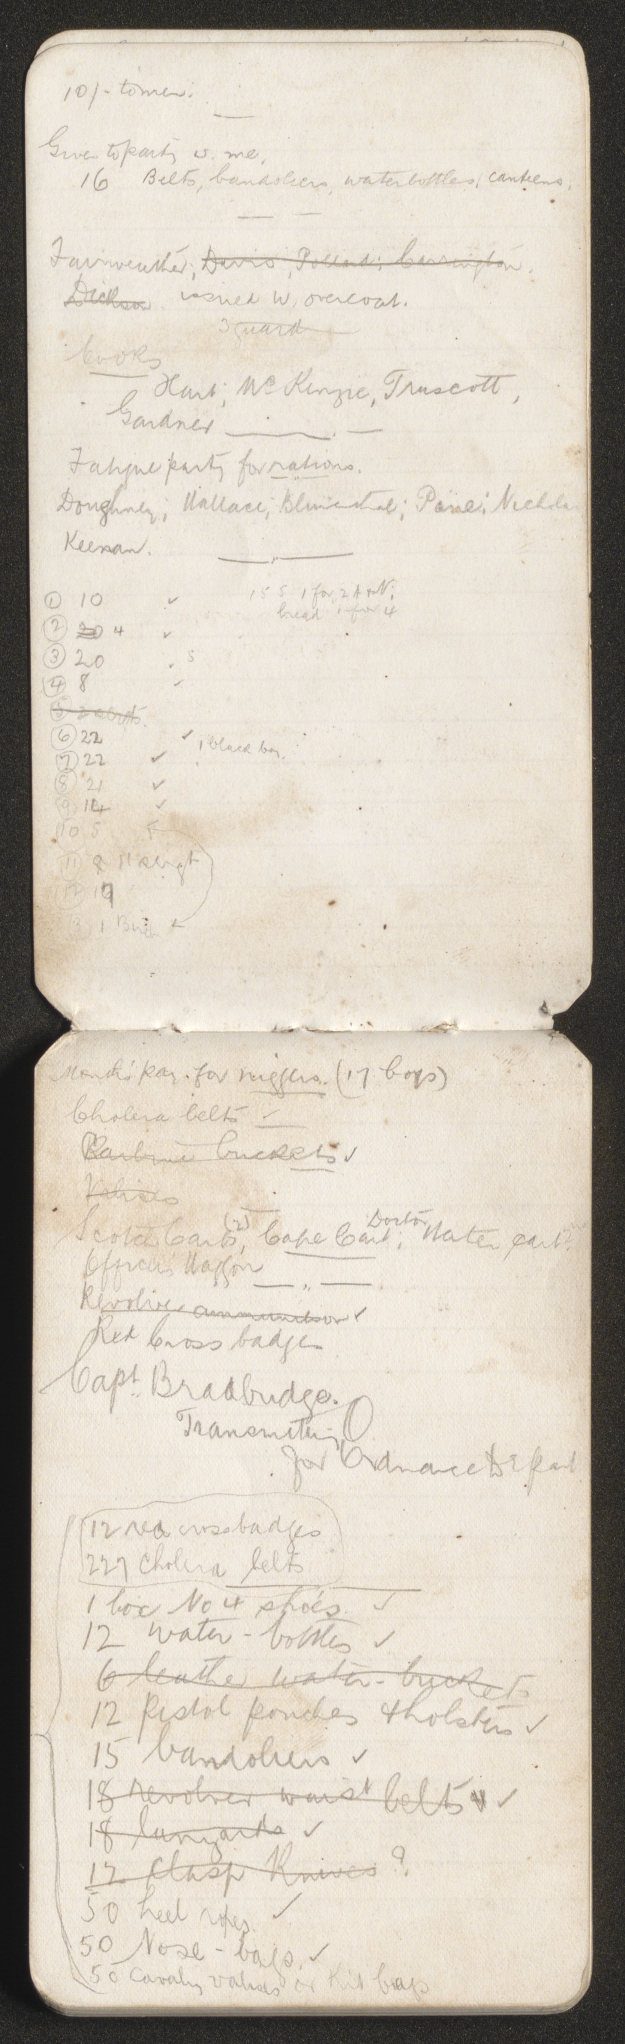 10/- to men.
Given to party w. me,
16 Belts, bandoliers, waterbottles, canteens,
Fairweather; Davis; Pollard; Carrington,
Dickson issued w. overcoat.
3 guard
Cooks
Hart; McKenzie, Truscott,
Gardner
Fatigue party for rations.
Doughney; Wallace; Blumenthal; Paine; Nicholas
Keenan.
① 10 ✓ 15 5 1 for 2
② 20 4 ✓ bread 1 for 4
③ 20 5
④ 8 ✓
⑤
⑥ 22 ✓ 1 black boy.
⑦ 22 ✓
⑧ 21 ✓
⑨ 14 ✓
10 5
11 8
12
1
Month's pay for niggers. (17 boys)
Cholera belts ✓
Carbine buckets ✓
Valises
Scotch Carts (2), Cape Cart; Doctor Water cart
Officers Waggon
Revolver ammunition ✓
Red Cross badges
Capt. Bradbudge.
for Ordnance Depart
12 red cross badges
227 cholera belts
1 box No 4 shoes ✓
12 water-bottles ✓
6 leather water-buckets
12 pistol pouches & holsters ✓
15 bandoliers ✓
18 revolver waist belts ✓
18 lanyards ✓
12 clasp knives ?
50 heel ropes ✓
50 Nose-bags ✓
50 cavalry valises or kit bags